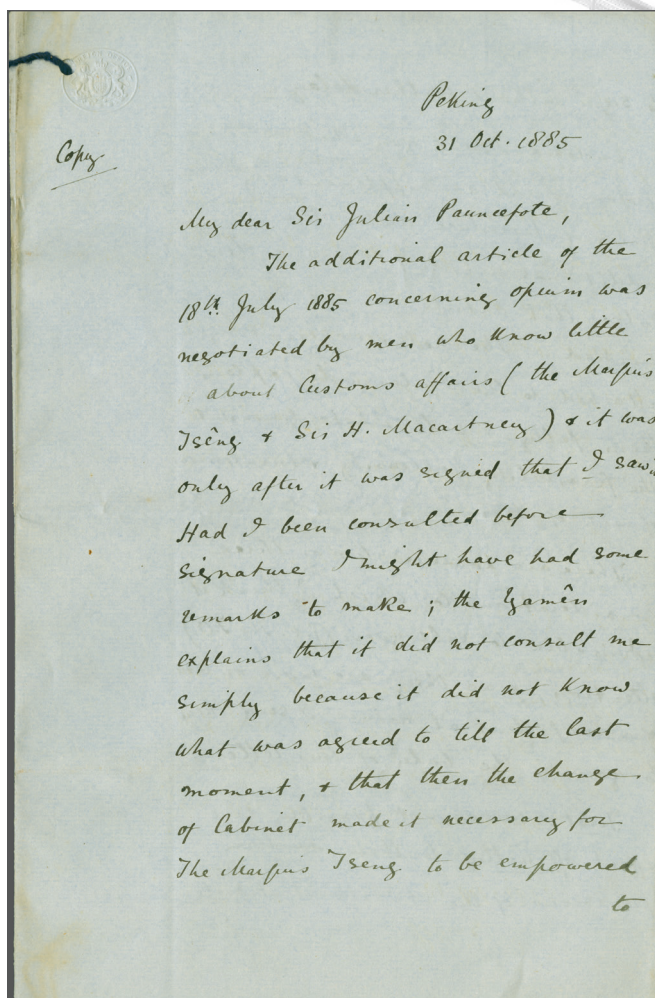 Peking
31 Oct. 1885
Copy
My dear Sir Julian Pauncefote,
The additional article of the
18th July 1885 concerning opium was
negotiated by men who know little
about Customs affairs (the Marquis
Tsêng & Sir H. Macartney) & it was
only after it was signed that I saw
Had I been consulted before
signature I might have had some
remarks to make; the Yamên
explains that it did not consult me
simply because it did not know
what was agreed to till the last
moment, & that then the change
of Cabinet made it necessary for
The Marquis Tseng to be empowered
to